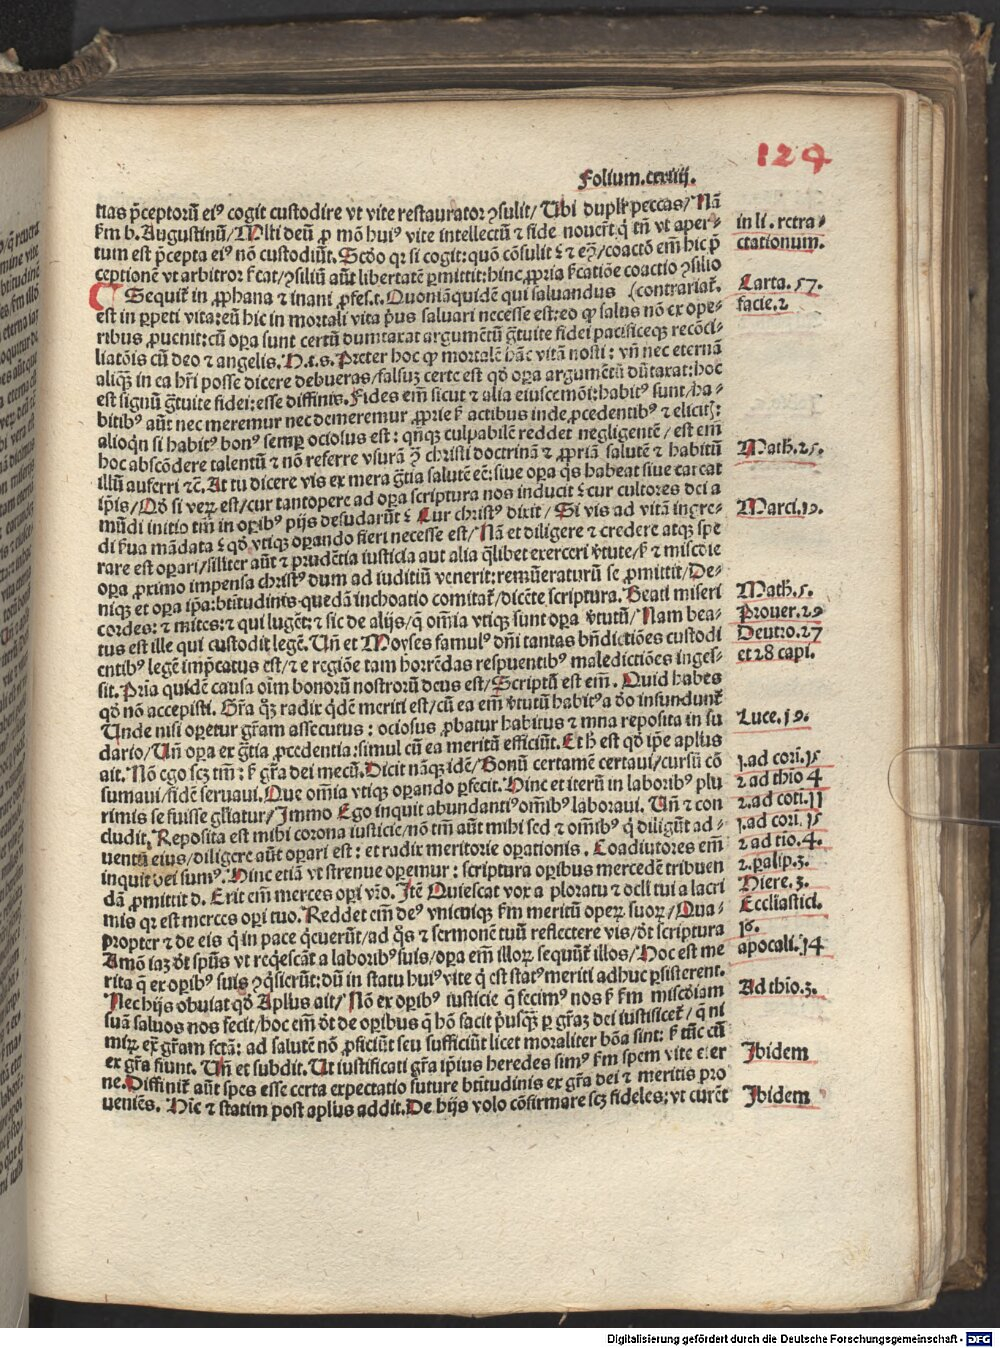 124
Folium.cxxiiij.
nas p̄ceptorū eiꝰ cogit custodire vt vite restaurator ꝯsulit/ Ubi dupl'r peccas/ Nā
in li. retra-
km b. Augustinū/ Mlti deū ꝓ mō huiꝰ vite intellectu ⁊ fide nouerūt q̄ tn̄ vt aper-
ctationum.
tum est p̄cepta eiꝰ nō custodiūt. Scd̄o qꝛ si cogit: quō cōsulit ⁊ eꝯ/ coactō em̄ hic p̄
ceptionē vt arbitror: ſcat/ ꝯsiliū aūt libertatē ꝑmittit: hinc ꝓpria ſcatiōe coactio ꝯsilio
Carta. 57.
Sequit̄ in ꝓphana ⁊ inani ꝓfes.t. Quoniāquidē qui saluandus (contrariat̄.
facie.2
est in ꝑpeti vita: eū hic in mortali vita p̄us saluari necesse est: eo ꝙ salus nō ex ope-
ribus ꝓuenit: cū oꝑa sunt certū dumtaxat argumētū gr̄tuite fidei pacificeqꝫ recōci-
liatōis cū deo ⁊ angelis. H.t.s. Preter hoc ꝙ mortalē hāc vitā nosti: vn̄ nec eternā
aliqꝫ in ea hr̄i posse dicere debueras/ falsuꝫ certe est qd̄ oꝑa argumētū dūtaxat: hoc
est signū gr̄tuite fidei: esse diffinis. Fides em̄ sicut ⁊ alia eiuscemōi: habitꝰ sunt/ ha-
bitibꝰ aūt nec meremur nec demeremur ꝓprie ſ actibus inde ꝓcedentibꝰ ⁊ elicit':
alioqn̄ si habitꝰ bonꝰ semꝑ ociosus est: qn̄qꝫ culpabilē reddet negligentē/ est em̄
hoc abscōdere talentū ⁊ nō referre vsurā ꝯ christi doctrinā ⁊ ꝓpriā salutē ⁊ habitū
Math.25.
illū auferri ⁊c̄. At tu dicere vis ex mera gr̄tia salutē eē: siue oꝑa q̄s habeat siue careat
ip̄is/ Qd̄ si veꝝ est/ cur tantopere ad oꝑa scriptura nos inducit ⁊ cur cultores dei a
mūdi initio tm̄ in oꝑibꝰ pijs desudarūt ⁊ Cur christꝰ dixit/ Si vis ad vitā ingre-
Marci.10.
di ſua mādata ⁊ qd̄ vtiqꝫ oꝑando fieri necesse est/ Nā et diligere ⁊ credere atqꝫ spe
rare est oꝑari/ siliter aūt ⁊ prudētia iusticia aut alia q̄libet exerceri v̄tute/ ſ ⁊ miscd̄ie
oꝑa ꝓximo impensa christꝰ dum ad iuditiū venerit: remūeraturū se ꝓmittit/ De-
niqꝫ et oꝑa ip̄a: btītudinis quedā inchoatio comitat̄/ dicēte scriptura. Beati miseri
Math.5.
cordes: ⁊ mites: ⁊ qui lugēt: ⁊ sic de alijs/ q̄ om̄ia vtiqꝫ sunt oꝑa v̄tutū/ Nam bea-
Prouer.29
tus est ille qui custodit legē. Un̄ et Moyses famulꝰ dn̄i tantas bn̄dictiōes custodi
Deutro.27
entibꝰ legē imp̄catus est/ ⁊ e regiōe tam horrēdas respuentibꝰ maledictiōes inges-
et 28 capi.
sit. Pr̄ia quidē causa oīm bonorū nostrorū deus est/ Scriptū est em̄. Quid habes
qd̄ nō accepisti. Gr̄a qꝫ radix q̄dē meriti est/ cū ea em̄ v̄tutū habitꝰ a d̄o infundunt̄
Unde nisi oꝑetur gr̄am assecutus: ociosus ꝓbatur habitus ⁊ mna reposita in su
Luce.19.
dario/ Un̄ oꝑa ex gr̄tia ꝓcedentia: simul cū ea meritū efficiūt. Et h̄ est qd̄ ip̄e apl̄us
ait. Nō ego scꝫ tm̄: ſ gr̄a dei mecū. Dicit nāqꝫ idē/ Bonū certamē certaui/ cursū cō
1.ad cori.15
sumaui/ fidē seruaui. Que om̄ia vtiqꝫ oꝑando ꝑfecit. Hinc et iterū in laboribꝰ plu
2 ad thiō 4
rimis se fuisse gl̄iatur/ Immo Ego inquit abundantiꝰ om̄ibꝰ laboraui. Un̄ ⁊ con
2.ad cori.11
cludit. Reposita est mihi corona iusticie/ nō tm̄ aūt mihi sed ⁊ om̄ibꝰ q̄ diligūt ad-
1.ad cori.15
uentū eius/ diligere aūt oꝑari est: et radix meritorie oꝑationis. Coadiutores em̄
2 ad tio.4.
inquit dei sumꝰ. Hinc etiā vt strenue oꝑemur: scriptura oꝑibus mercedē tribuen
2.ꝑalip.3.
dā ꝓmittit d. Erit em̄ merces oꝑi vr̄o. Itē Quiescat vox a ploratu ⁊ ocl̄i tui a lacri
Hiere.3.
mis qꝛ est merces oꝑi tuo. Reddet em̄ deꝰ vnicuiqꝫ ſm meritū opeꝝ suoꝝ/ Qua-
Eccliastici.
propter ⁊ de eis q̄ in pace q̄euerūt/ ad q̄s ⁊ sermonē tuū reflectere vis/ d̄t scriptura
16.
Amō iaꝫ d̄t spūs vt req̄escāt a laboribꝰ suis/ oꝑa em̄ illoꝝ sequūt̄ illos/ Hoc est me
apocali.14
rita q̄ ex oꝑibꝰ suis ꝯq̄sierūt: dū in statu huiꝰ vite q̄ est statꝰ meriti adhuc ꝑsisterent.
Nec hijs obuiat qd̄ Apl̄us ait/ Nō ex oꝑibꝰ iusticie q̄ fecimꝰ nos ſ ſm miscd̄iam
Ad thīo.3.
suā saluos nos fecit/ hoc em̄ d̄t de oꝑibus q̄ hō facit p̄usqꝫ ꝑ gr̄aꝫ dei iustificet̄/ q̄ ni
miꝝ ex gr̄am fctā: ad salutē nō ꝓficiūt seu sufficiūt licet moraliter bōa sint: ſ tūc cū
ex gr̄a fiunt. Un̄ et subdit. Ut iustificati gr̄a ip̄ius heredes simꝰ ſm spem vite eter
Ibidem
ne. Diffinit̄ aūt spes esse certa expectatio future btītudinis ex gr̄a dei ⁊ meritis pro
ueniēs. Hīc ⁊ statim post apl̄us addit. De hijs volo cōfirmare scꝫ fideles: vt curēt
Ibidem
Digitalisierung gefördert durch die Deutsche Forschungsgemeinschaft - DFG